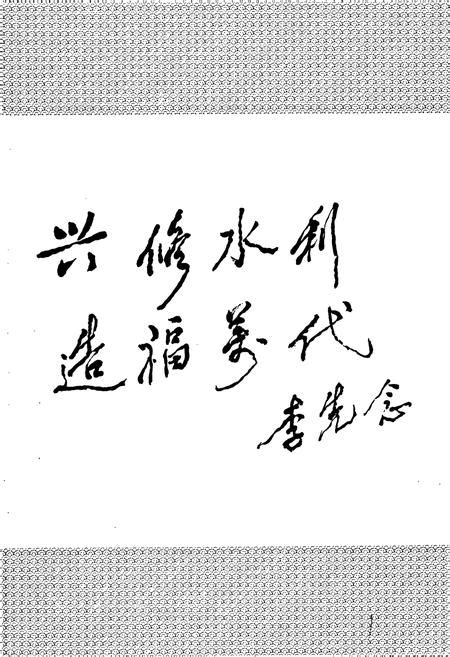 兴修水利
造福萬代
李先念